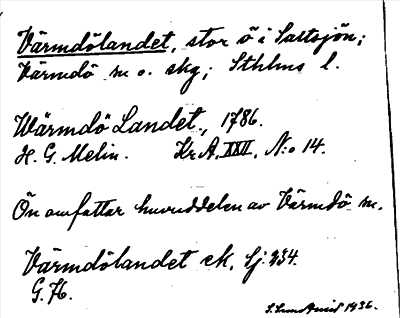 Värmdölandet, stor ö i Saltsjön;
Värmdö sn o. skg; Sthlms l.
Wärmdö Landet, 1786.
H. G. Melin. Kr.A. XXII. N:o 14.
Ön omfattar huvuddelen av Värmdö sn.
Värmdölandet ek. bl. 234.
G. H.
1936.